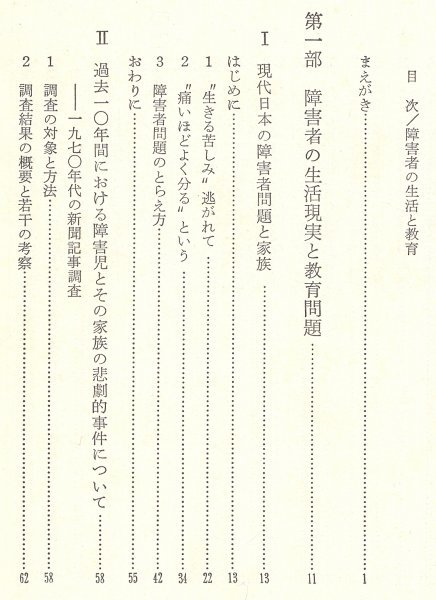 目 次／障害者の生活と教育
まえがき………1
第一部 障害者の生活現実と教育問題………11
Ⅰ 現代日本の障害者問題と家族………13
はじめに………13
1 〝生きる苦しみ〟逃がれて………22
2 〝痛いほどよく分る〟という………34
3 障害者問題のとらえ方………42
おわりに………55
Ⅱ 過去一〇年間における障害児とその家族の悲劇的事件について………58
――一九七〇年代の新聞記事調査
1 調査の対象と方法………58
2 調査結果の概要と若干の考察………62